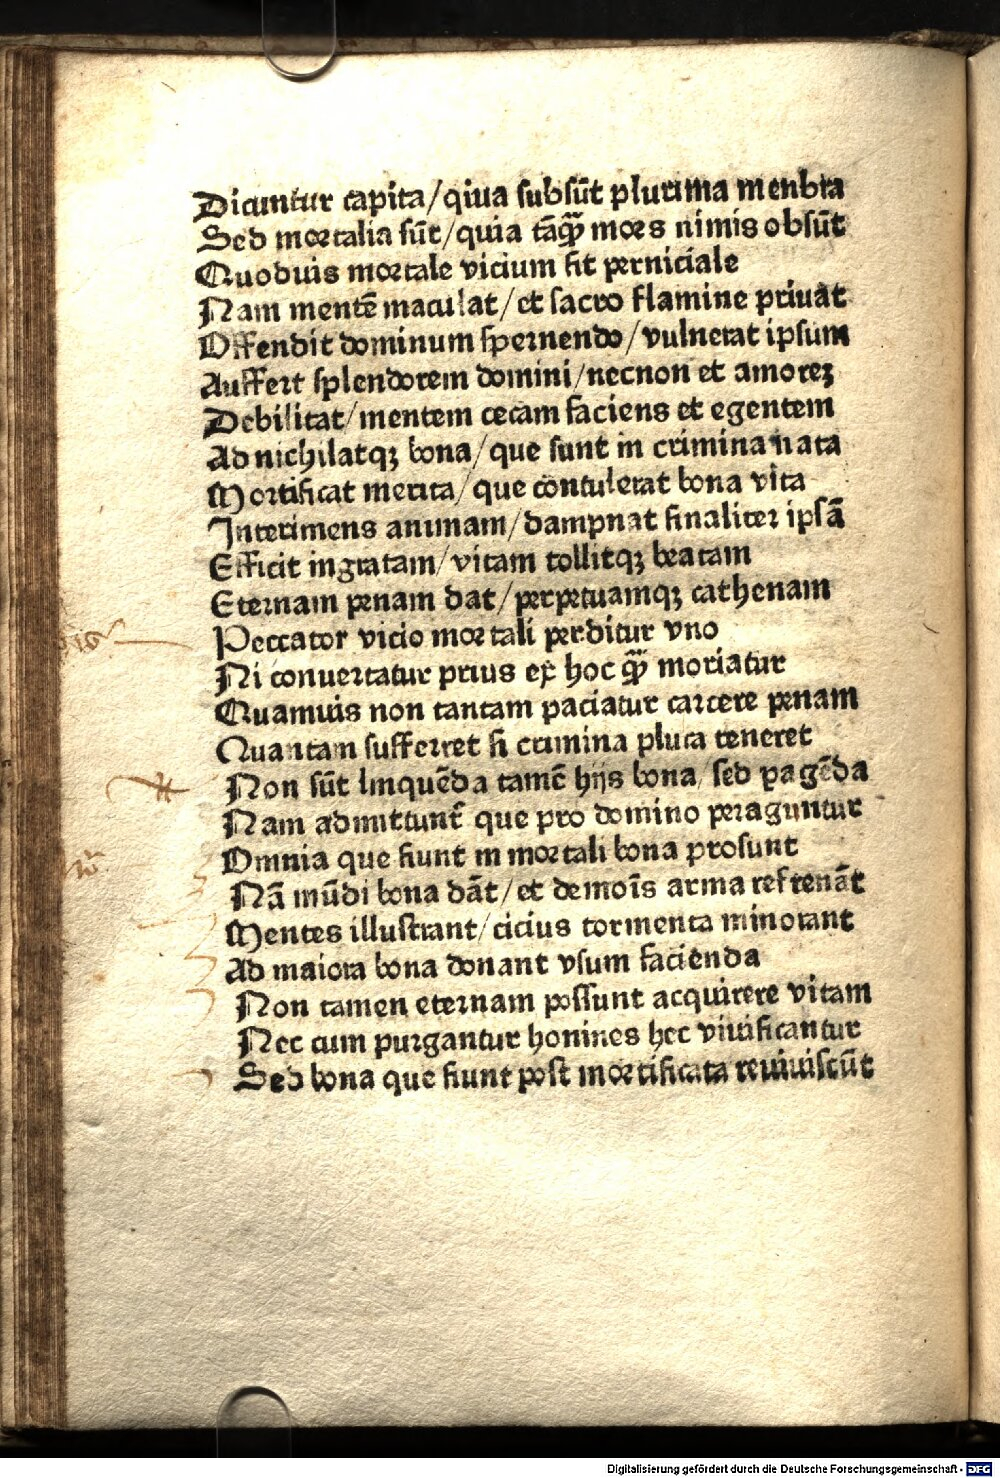 Dicuntur capita/qiua subsūt plurima menbra
Sed mortalia sūt/quia tāq̄ȝ mors nimis obsūt
Quoduis mortale vicium fit perniciale
Nam mentē maculat/et sacro flamine priuāt
Offendit dominum spernendo/vulnerat ipsum
Auffert splendorem domini/necnon et amoreȝ
Debilitat/mentem cecam faciens et egentem
Ad nichilatqȝ bona/que sunt in crimina nata
Mortificat merita/que contulerat bona vita
Interimens animam/dampnat finaliter ipsā
Efficit ingratam/vitam tollitqȝ beatam
Eternam penam dat/perpetuamqȝ cathenam
Peccator vicio mortali perditur vno
Ni conuertatur prius ex hoc q̄ȝ moriatur
Quamuis non tantam paciatur carcere penam
Quantam sufferret si crimina plura teneret
Non sūt linquēda tamē hijs bona/sed ꝑagēda
Nam admittunt̄ que pro domino peraguntur
Omnia que fiunt in mortali bona prosunt
Nā mūdi bona dāt/et demoīs arma refrenāt
Mentes illustrant/cicius tormenta minorant
Ad maiora bona donant vsum facienda
Non tamen eternam possunt acquirere vitam
Nec cum purgantur honines hec viuificantur
Sed bona que fiunt post mortificata reuiuiscūt
Digitalisierung gefördert durch die Deutsche Forschungsgemeinschaft - DFG